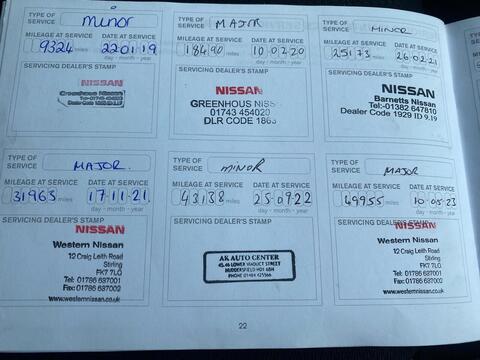 TYPE OF SERVICE minor
MILEAGE AT SERVICE DATE AT SERVICE
9324 miles 22 01 19
day - month - year
SERVICING DEALER'S STAMP
NISSAN
Greenhous Nissan
TYPE OF SERVICE MAJOR
MILEAGE AT SERVICE DATE AT SERVICE
18490 miles 10 02 20
day - month - year
SERVICING DEALER'S STAMP
NISSAN
GREENHOUS NISS
01743 454020
DLR CODE 1863
TYPE OF SERVICE MINOR
MILEAGE AT SERVICE DATE AT SERVICE
25173 miles 26 02 21
day - month - year
SERVICING DEALER'S STAMP
NISSAN
Barnetts Nissan
Tel:-01382 647810
Dealer Code 1929 ID 9.19
TYPE OF SERVICE MAJOR.
MILEAGE AT SERVICE DATE AT SERVICE
31963 miles 17 11 21
day - month - year
SERVICING DEALER'S STAMP
NISSAN
Western Nissan
12 Craig Leith Road
Stirling
FK7 7LQ
Tel: 01786 637001
Fax: 01786 637002
www.westernnissan.co.uk
TYPE OF SERVICE MINOR
MILEAGE AT SERVICE DATE AT SERVICE
43138 miles 25 09 22
day - month - year
SERVICING DEALER'S STAMP
AK AUTO CENTER
45-46 LOWER VIADUCT STREET
HUDDERSFIELD HD1 6BH
PHONE 01484 425566
TYPE OF SERVICE MAJOR
MILEAGE AT SERVICE DATE AT SERVICE
49955 miles 10 05 23
day - month - year
SERVICING DEALER'S STAMP
NISSAN
Western Nissan
12 Craig Leith Road
Stirling
FK7 7LQ
Tel: 01786 637001
Fax: 01786 637002
www.westernnissan.co.uk
22